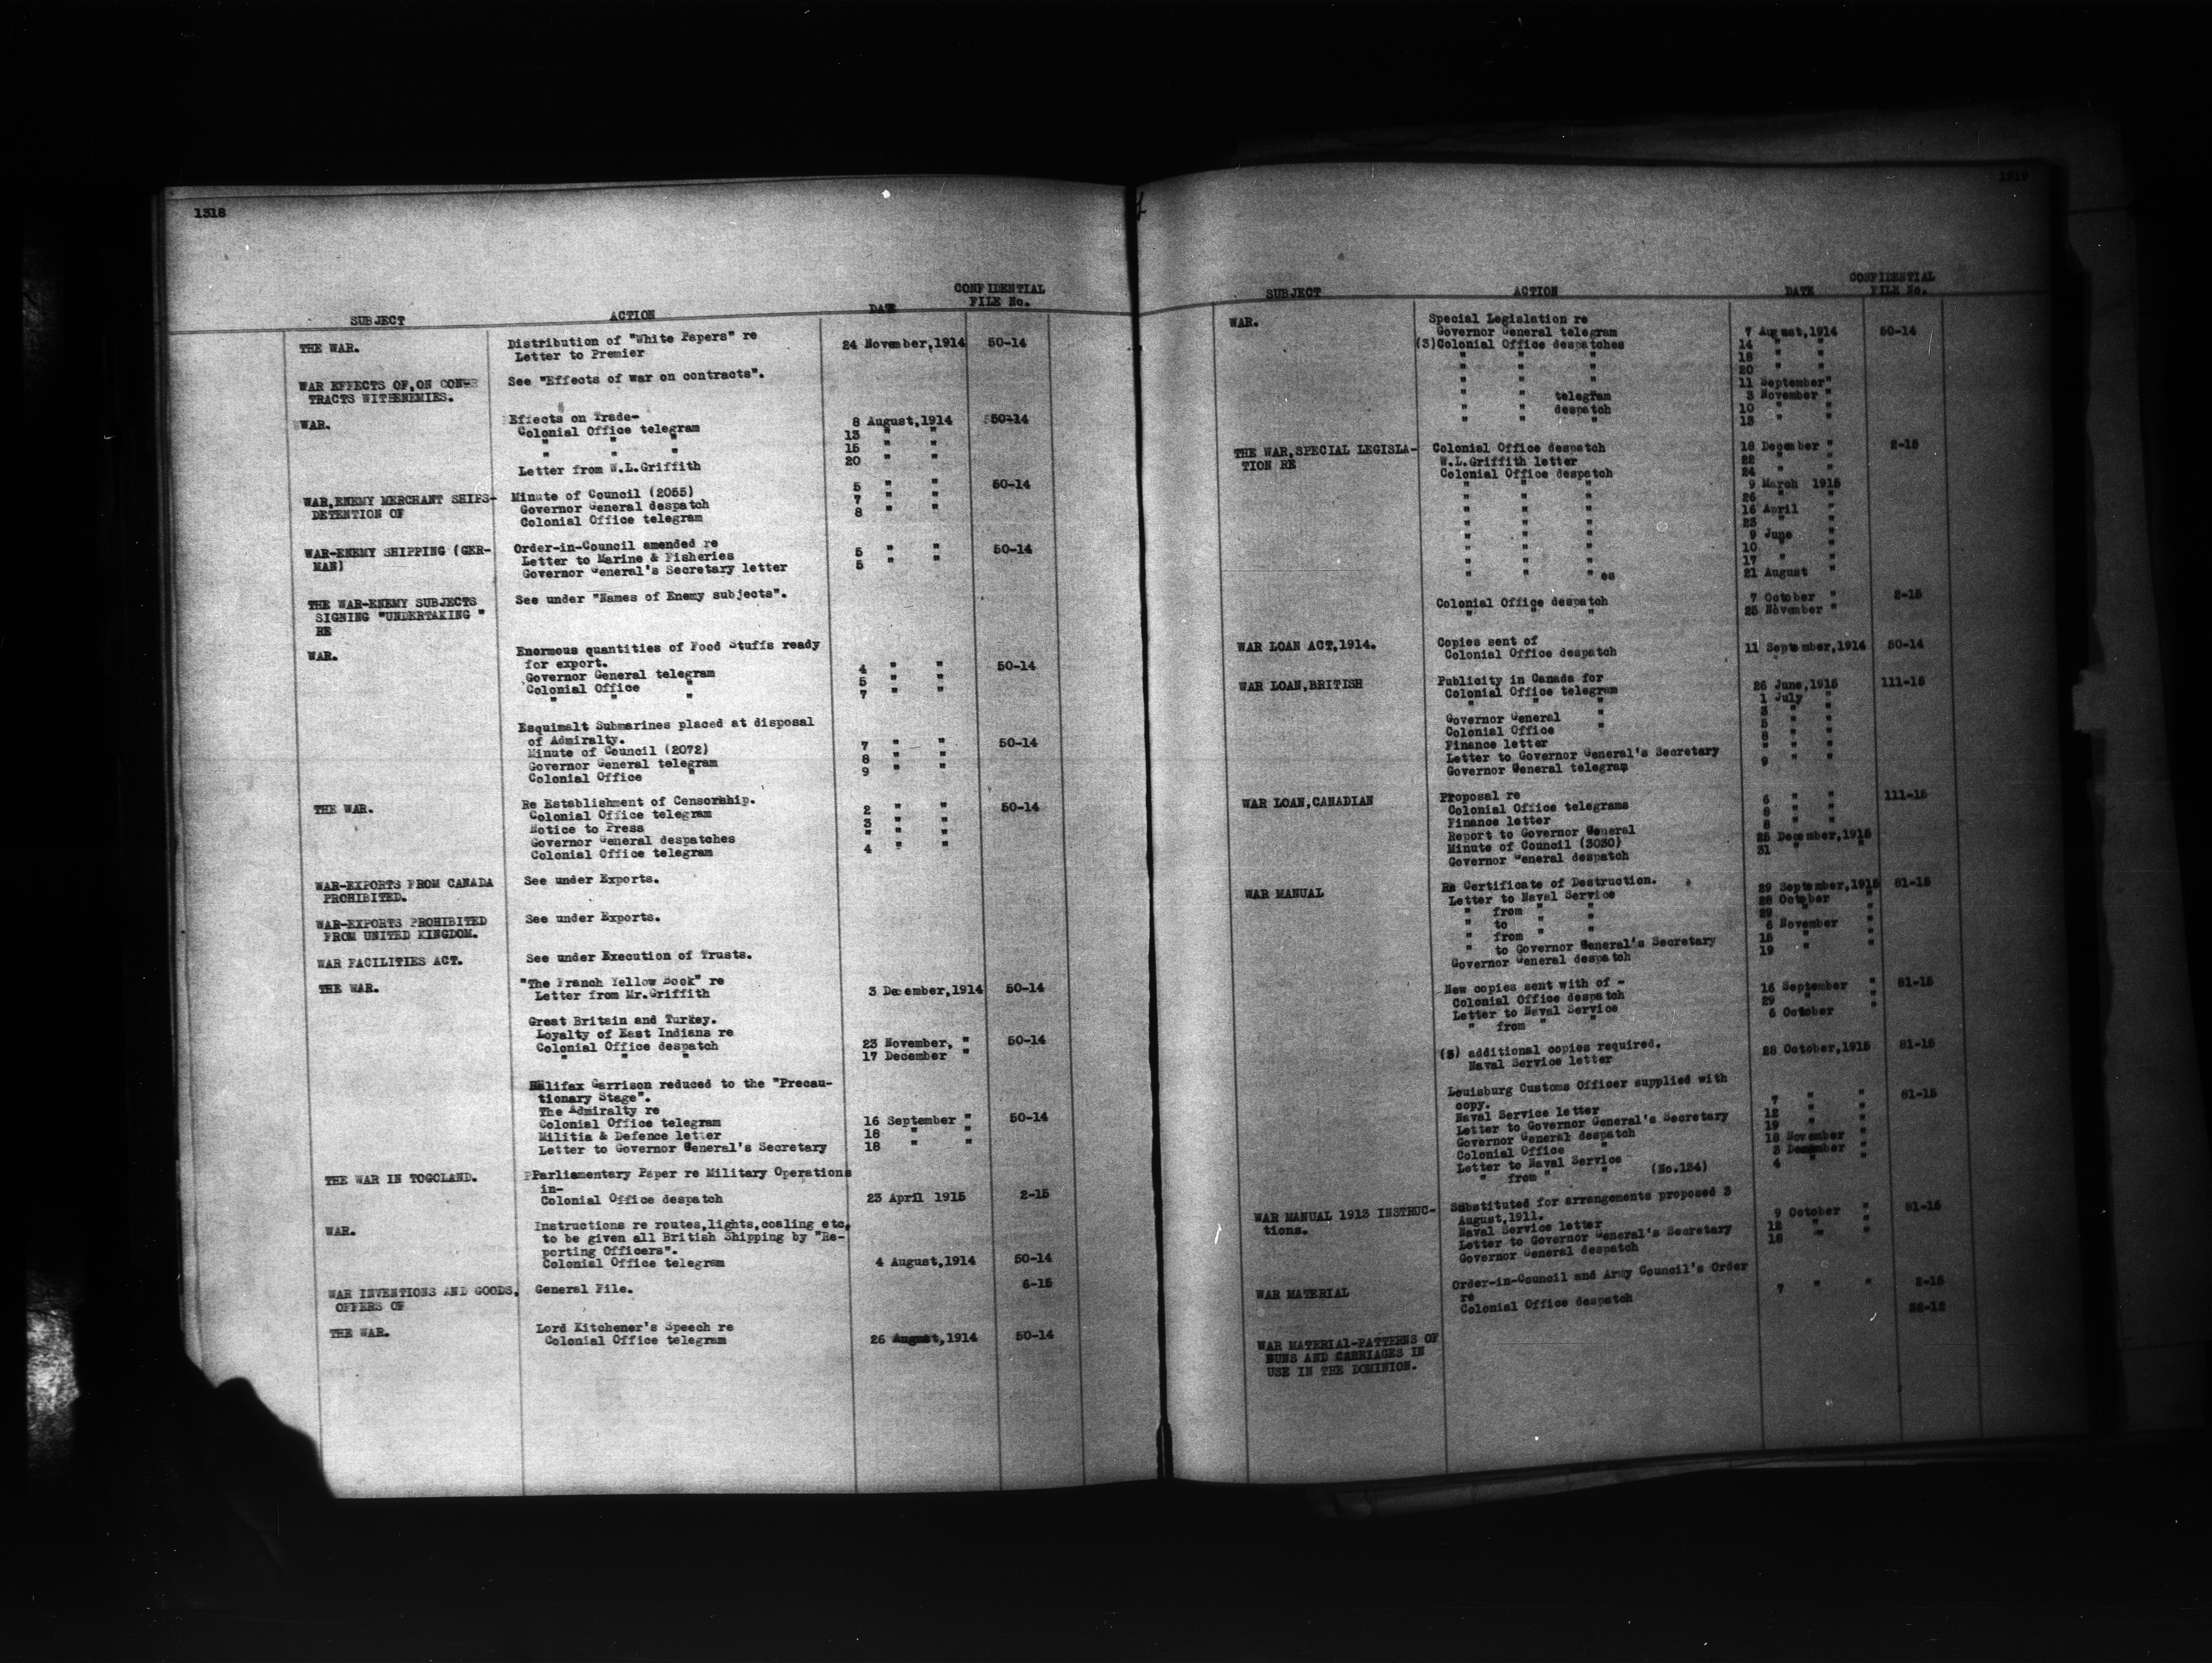 1318
SUBJECT ACTION DATE CONFIDENTIAL FILE No.
THE WAR. Distribution of "White Papers" re
Letter to Premier 24 November,1914 50-14
WAR EFFECTS OF,ON CON- See "Effects of war on contracts".
TRACTS WITHENEMIES.
WAR. Effects on Trade-
Colonial Office telegram 8 August,1914 50-14
" " " 13 " "
" " " 15 " "
Letter from W.L.Griffith 20 " "
WAR,ENEMY MERCHANT SHIPS- Minute of Council (2055) 5 " " 50-14
DETENTION OF Governor General despatch 7 " "
Colonial Office telegram 8 " "
WAR-ENEMY SHIPPING (GER- Order-in-Council amended re
MAN) Letter to Marine & Fisheries 5 " " 50-14
Governor General's Secretary letter 5 " "
THE WAR-ENEMY SUBJECTS See under "Names of Enemy subjects".
SIGNING "UNDERTAKING "
RE
WAR. Enormous quantities of Food Stuffs ready
for export.
Governor General telegram 4 " " 50-14
Colonial Office " 5 " "
" " " 7 " "
Esquimalt Submarines placed at disposal
of Admiralty.
Minute of Council (2072) 7 " " 50-14
Governor General telegram 8 " "
Colonial Office " 9 " "
THE WAR. Re Establishment of Censorship.
Colonial Office telegram 2 " " 50-14
Notice to Press 3 " "
Governor General despatches " " "
Colonial Office telegram 4 " "
WAR-EXPORTS FROM CANADA See under Exports.
PROHIBITED.
WAR-EXPORTS PROHIBITED See under Exports.
FROM UNITED KINGDOM.
WAR FACILITIES ACT. See under Execution of Trusts.
THE WAR. "The Franch Yellow Book" re
Letter from Mr.Griffith 3 December,1914 50-14
Great Britain and Turkey.
Loyalty of East Indians re
Colonial Office despatch 23 November, " 50-14
" " " 17 December "
Halifax Garrison reduced to the "Precau-
tionary Stage".
The Admiralty re
Colonial Office telegram 16 September " 50-14
Militia & Defence letter 18 " "
Letter to Governor General's Secretary 18 " "
THE WAR IN TOGOLAND. Parliamentary Paper re Military Operations
in-
Colonial Office despatch 23 April 1915 2-15
WAR. Instructions re routes,lights,coaling etc,
to be given all British Shipping by "Re-
porting Officers".
Colonial Office telegram 4 August,1914 50-14
WAR INVENTIONS AND GOODS, General File. 6-15
OFFERS OF
THE WAR. Lord Kitchener's Speech re
Colonial Office telegram 26 August,1914 50-14
1319
SUBJECT ACTION DATE CONFIDENTIAL FILE No.
WAR. Special Legislation re
Governor General telegram 7 August,1914 50-14
(3)Colonial Office despatches 14 " "
" " " 18 " "
" " " 20 " "
" " " 11 September"
" " telegram 3 November "
" " despatch 10 " "
" " " 13 " "
THE WAR,SPECIAL LEGISLA- Colonial Office despatch 16 December " 2-15
TION RE W.L.Griffith letter 22 " "
Colonial Office despatch 24 " "
" " " 9 March 1915
" " " 26 " "
" " " 16 April "
" " " 23 " "
" " " 9 June "
" " " 10 " "
" " " 17 " "
" " " es 21 August "
Colonial Office despatch 7 October " 2-15
" " " 25 November "
WAR LOAN ACT,1914. Copies sent of
Colonial Office despatch 11 September,1914 50-14
WAR LOAN,BRITISH Publicity in Canada for
Colonial Office telegram 26 June,1915 111-15
" " " 1 July "
Governor General "
Colonial Office "
Finance letter
Letter to Governor General's Secretary
Governor General telegram 9 " "
WAR LOAN,CANADIAN Proposal re
Colonial Office telegrams 6 " " 111-15
Finance letter 8 " "
Report to Governor General 8 " "
Minute of Council (3030) December,1915
Governor General despatch 31 " "
WAR MANUAL Re Certificate of Destruction.
Letter to Naval Service 29 September,1915 81-15
" from " " 28 October "
" to " " 29 " "
" from " " 6 November "
" to Governor General's Secretary 15 " "
Governor General despatch 19 " "
New copies sent with of -
Colonial Office despatch 16 September " 81-15
Letter to Naval Service 29 " "
" from " " 6 October "
(3) additional copies required.
Naval Service letter 28 October,1915 81-15
Louisburg Customs Officer supplied with
copy.
Naval Service letter 7 " " 81-15
Letter to Governor General's Secretary 12 " "
Governor General despatch 19 " "
Colonial Office " 18 November "
Letter to Naval Service 3 December "
" from " " (No.134) 4 " "
WAR MANUAL 1913 INSTRUC- Substituted for arrangements proposed 3
tions. August,1911.
Naval Service letter 9 October " 81-15
Letter to Governor General's Secretary 12 " "
Governor General despatch 18 " "
WAR MATERIAL Order-in-Council and Army Council's Order
re
Colonial Office despatch 7 " " 2-15
WAR MATERIAl-PATTERNS OF
GUNS AND CARRIAGES IN
USE IN THE DOMINION.